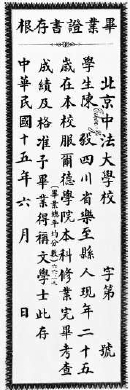 畢業證書存根
北京中法大學校 字第 號
學生陳毅四川省樂至縣人現年二十五
歲在本校服爾德學院本科修業完畢考查
成績及格准予畢業得稱文學士此存
中華民國十五年六月 日